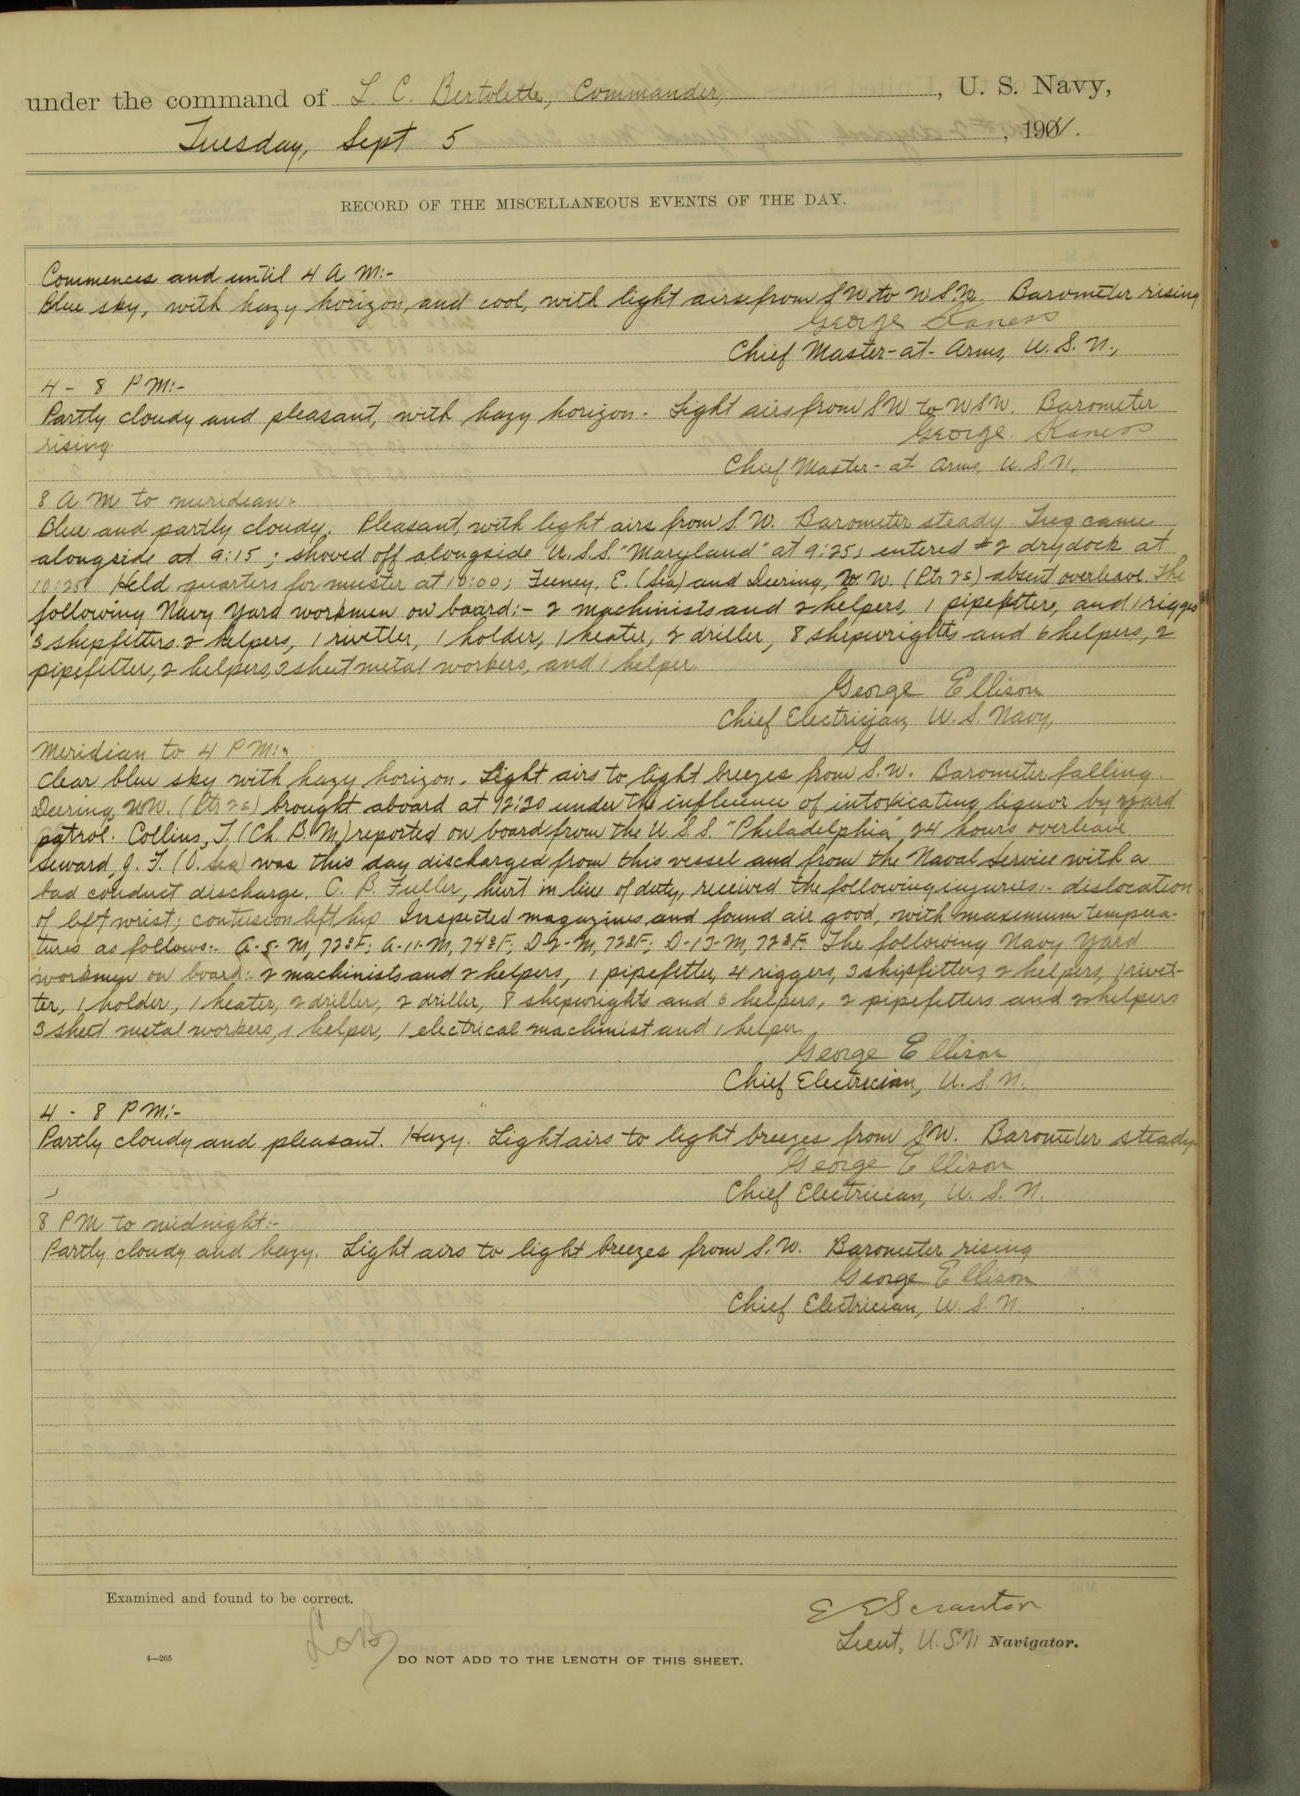 under the command of L. C. Bertolette, Commander, , U. S. Navy,
Tuesday, Sept 5 , 1901.
RECORD OF THE MISCELLANEOUS EVENTS OF THE DAY.
Commences and until 4 A M:-
Blue sky, with hazy horizon, and cool, with light airs from SW to WSW. Barometer rising
George
Chief Master-at-Arms, U. S. N.,
4 - 8 P M:-
Partly cloudy and pleasant, with hazy horizon. Light airs from SW to WSW. Barometer
rising.
George
Chief Master-at Arms, U. S. N.
8 A M to meridian:-
Blue and partly cloudy. Pleasant, with light airs from S. W. Barometer steady Tug came
alongside at 9:15; shoved off alongside U. S. S. "Maryland" at 9:25; entered #2 drydock at
10:25. Held quarters for muster at 10:00; Feeney, E. (Sea) and Deering, W. W. (Ptr 2c) absent overleave. The
following Navy Yard workmen on board:- 2 machinists and 2 helpers, 1 pipefitter, and 1 rigger
3 shipfitters 2 helpers, 1 rivetler, 1 holder, 1 heater, 2 driller, 8 shipwrights and 6 helpers, 2
pipefitter, 2 helpers, 3 sheet metal workers, and 1 helper.
George Ellison
Chief Electrician, U. S. Navy,
G
Meridian to 4 P M:-
Clear blue sky with hazy horizon. Light airs to light breezes from S. W. Barometer falling.
Deering, W.W. (Ptr 2c) brought aboard at 12:30 under the influence of intoxicating liquor by yard
patrol. Collins, T. (Ch. B. M) reported on board from the U. S. S. "Philadelphia", 24 hours overleave
Seward, J. F. (O. Sea) was this day discharged from this vessel and from the Naval Service with a
bad conduct discharge. O. B. Fuller, hurt in line of duty, received the following injuries:- dislocation
of left wrist; contusion left hip Inspected magazines and found air good, with maximum tempera-
tures as follows:- A-8-M, 72°F; A-11-M, 74°F; D-2-M, 72°F; D-13-M, 72°F. The following Navy Yard
workmen on board:- 2 machinists and 2 helpers, 1 pipefitter, 4 riggers, 3 shipfitters 2 helpers, 1 rivet-
ter, 1 holder, 1 heater, 2 driller, 2 driller, 8 shipwrights and 6 helpers, 2 pipefitters and 2 helpers
3 sheet metal workers, 1 helper, 1 electrical machinist and 1 helper.
George Ellison
Chief Electrician, U. S. N.
4 - 8 P M:-
Partly cloudy and pleasant. Hazy. Light airs to light breezes from SW. Barometer steady
George Ellison
Chief Electrician, U. S. N.
8 P M to midnight:-
Partly cloudy and hazy. Light airs to light breezes from S. W. Barometer rising
George Ellison
Chief Electrician, U. S. N.
Examined and found to be correct.
E E Scranton
Lieut, U.S.N Navigator.
LCB
4—265
DO NOT ADD TO THE LENGTH OF THIS SHEET.